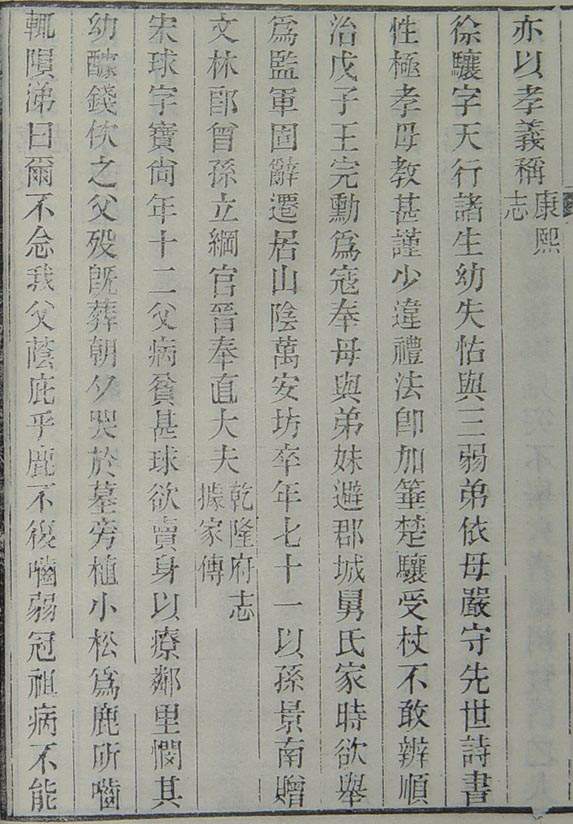 亦以孝義稱康熙志
徐驤字天行諸生幼失怙與三弱弟依母嚴守先世詩書
性極孝母教甚謹少違禮法卽加箠楚驤受杖不敢辨順
治戊子王完勳為寇奉母與弟妹避郡城舅氏家時欲舉
為監軍固辭遷居山陰萬安坊卒年七十一以孫景南贈
文林郎曾孫立綱官晉奉直大夫乾隆府志據家傳
宋球字寶尙年十二父病貧甚球欲賣身以療鄰里憫其
幼醵錢佽之父殁旣葬朝夕哭於墓旁植小松爲鹿所嚙
輒隕涕曰爾不念我父蔭庇乎鹿不復嚙弱冠祖病不能